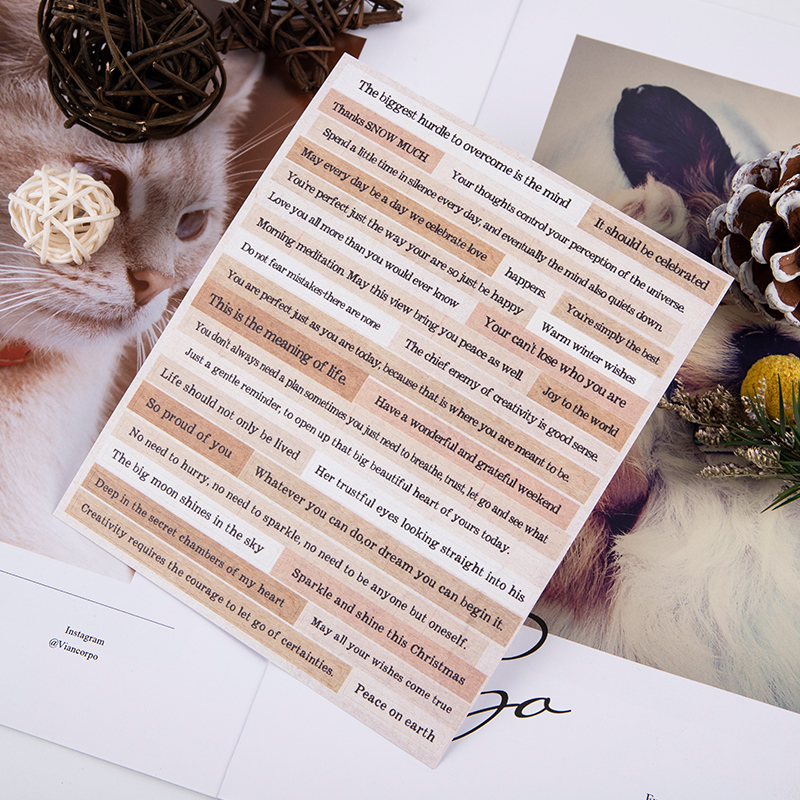 The biggest hurdle to overcome is the mind
Thanks SNOW MUCH
It should be celebrated
Your thoughts control your perception of the universe.
Spend a little time in silence every day, and eventually the mind also quiets down.
May every day be a day we celebrate love
happens.
You're simply the best
You're perfect just the way your are so just be happy
Warm winter wishes
Love you all more than you would ever know
Your can't lose who you are
Morning meditation. May this view bring you peace as well.
Joy to the world
Do not fear mistakes-there are none
The chief enemy of creativity is good sense.
You are perfect just as you are today, because that is where you are meant to be.
This is the meaning of life.
Have a wonderful and grateful weekend
You don't always need a plan sometimes you just need to breathe, trust, let go and see what
Just a gentle reminder, to open up that big beautiful heart of yours today.
Life should not only be lived
Her trustful eyes looking straight into his
So proud of you
Whatever you can do,or dream you can begin it.
No need to hurry, no need to sparkle, no need to be anyone but oneself.
The big moon shines in the sky
Sparkle and shine this Christmas
Deep in the secret chambers of my heart
May all your wishes come true
Creativity requires the courage to let go of certainties.
Peace on earth
Instagram
@Viancorpo